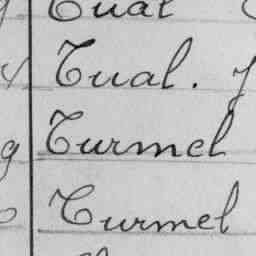 Tual
Tual.
Turmel
Turmel